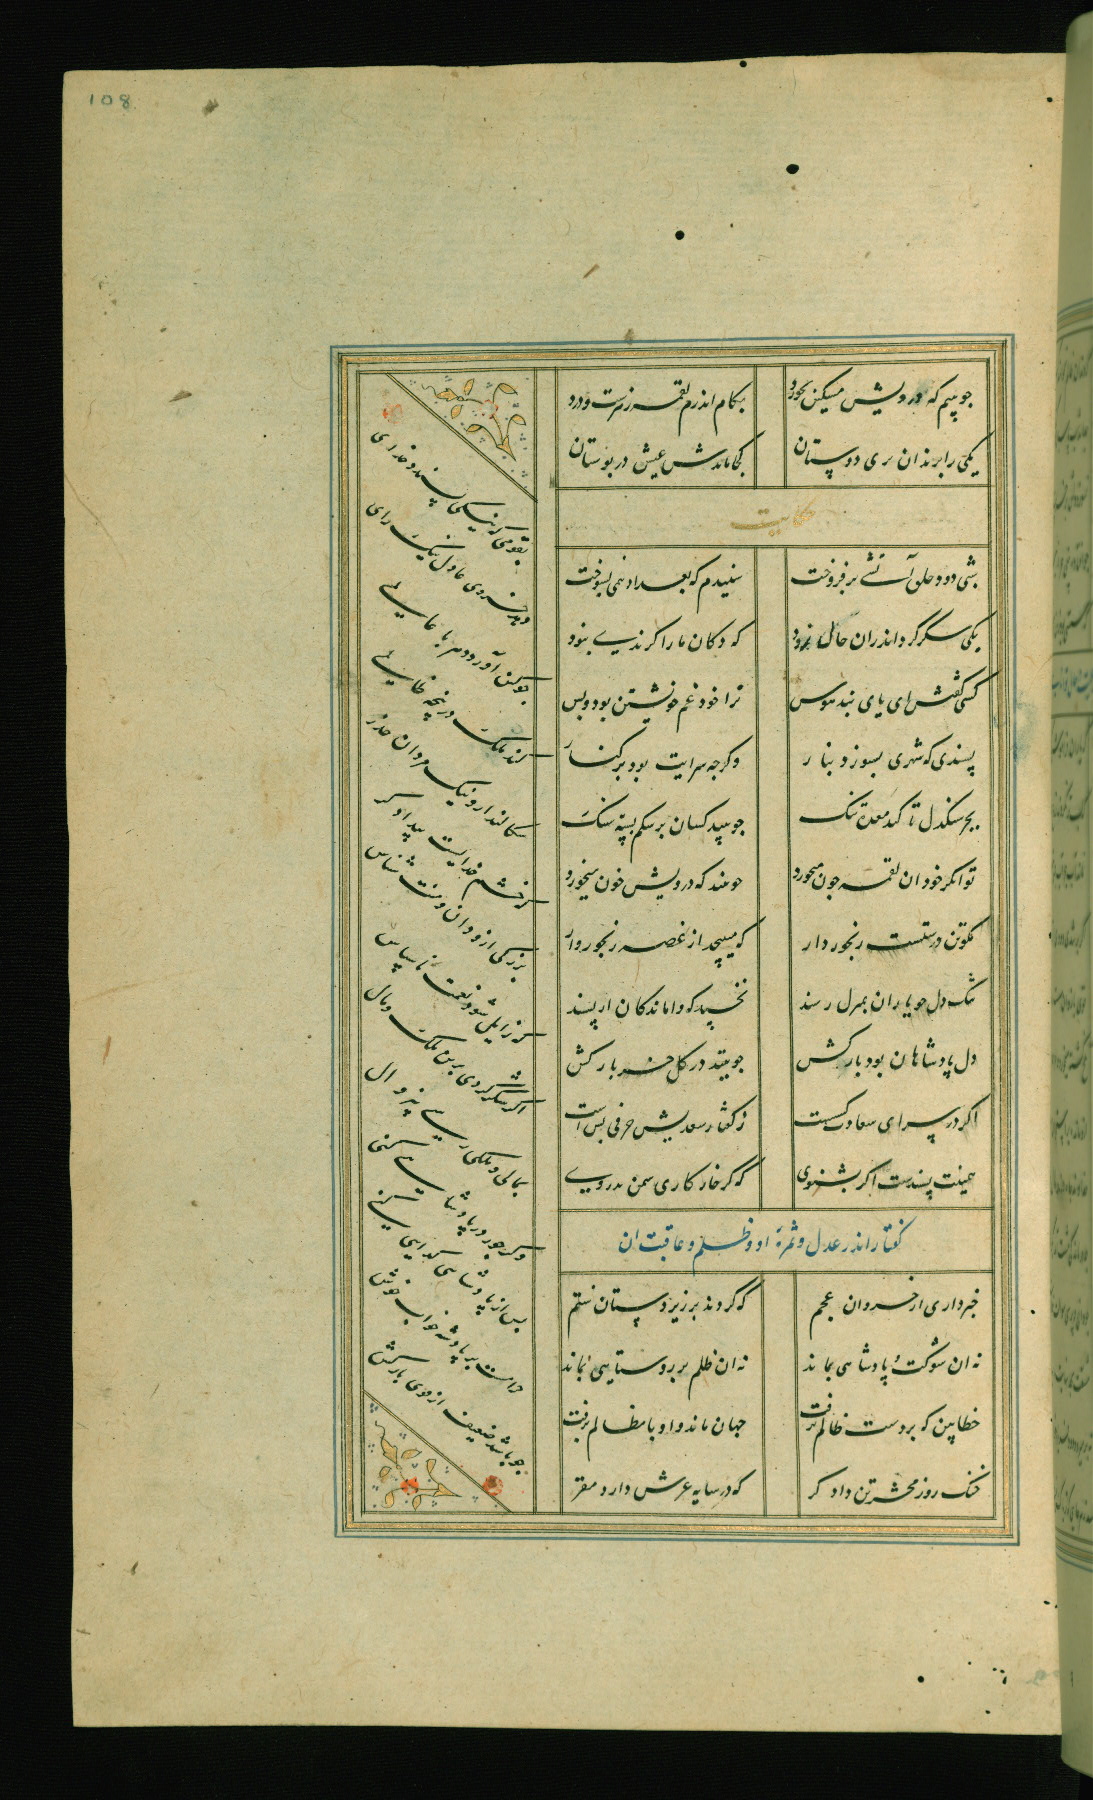 108
چو بینم که درویش مسکین نخورد بکام اندرم لقمه زهرست و درد
یکی را بزندان بری دوستان کجا ماندش عیش در بوستان
حکایت
شبی دود خلق آتشی بر فروخت شنیدم که بغداد نیمی بسوخت
یکی شکر کرد اندران حال زود که دکان ما را گزندی نبود
کسی گفتش ای یای بند هوس ترا خود غم خویشتن بود و بس
پسندی که شهری بسوزد بنار و کرچه سرایت بود بر کنار
بجز سنکدل تا کند معده تنک چو بیند کسان بر شکم بسته سنک
توانکر خود ان لقمه چون میخورد چو بیند که درویش خون میخورد
مکو تن درستست رنجور دار که میپیچد از غصه رنجوروار
تنک دل چو یاران بمنزل رسند نخسپد که واماندکان از پسند
دل پادشاهان بود بارکش چو بیند در کل خر بارکش
اکر در سرای سعادت کسست ز کفتار سعدیش حرفی بس است
همینت پسندست اکر بشنوی که کر خار کاری سمن ندروی
کفتار اندر عدل و ثمرهٔ او و ظلم و عاقبت ان
خبرداری از خسروان عجم که کردند بر زیردستان ستم
نه ان شوکت و پادشاهی بماند نه ان ظلم بر روستایی بماند
خطا بین که بر دست ظالم برفت جهان ماند و او با مظالم برفت
خنک روز محشر تن دادکر که در سایه عرش دارد مقر
بقومی که نیکی پسندد خدای
دهد خسروی عادل نیک رای
چو
کند ملک در پنجه ظالمی
سکالند ازو نیک مردان حذر
که خشم خدایست بیدادکر
بزرکی ازو دان و منت شناس
که زایل شود نعمت ناسپاس
اکر شکر کردی برین ملک و مال
بمالی و ملکی رسی بی زوال
و کر جور در پادشایی کنی
پس از پادشاهی کدایی کنی
حرامست بر پادشه خواب خوش
چو باشد ضعیف از قوی بارکش